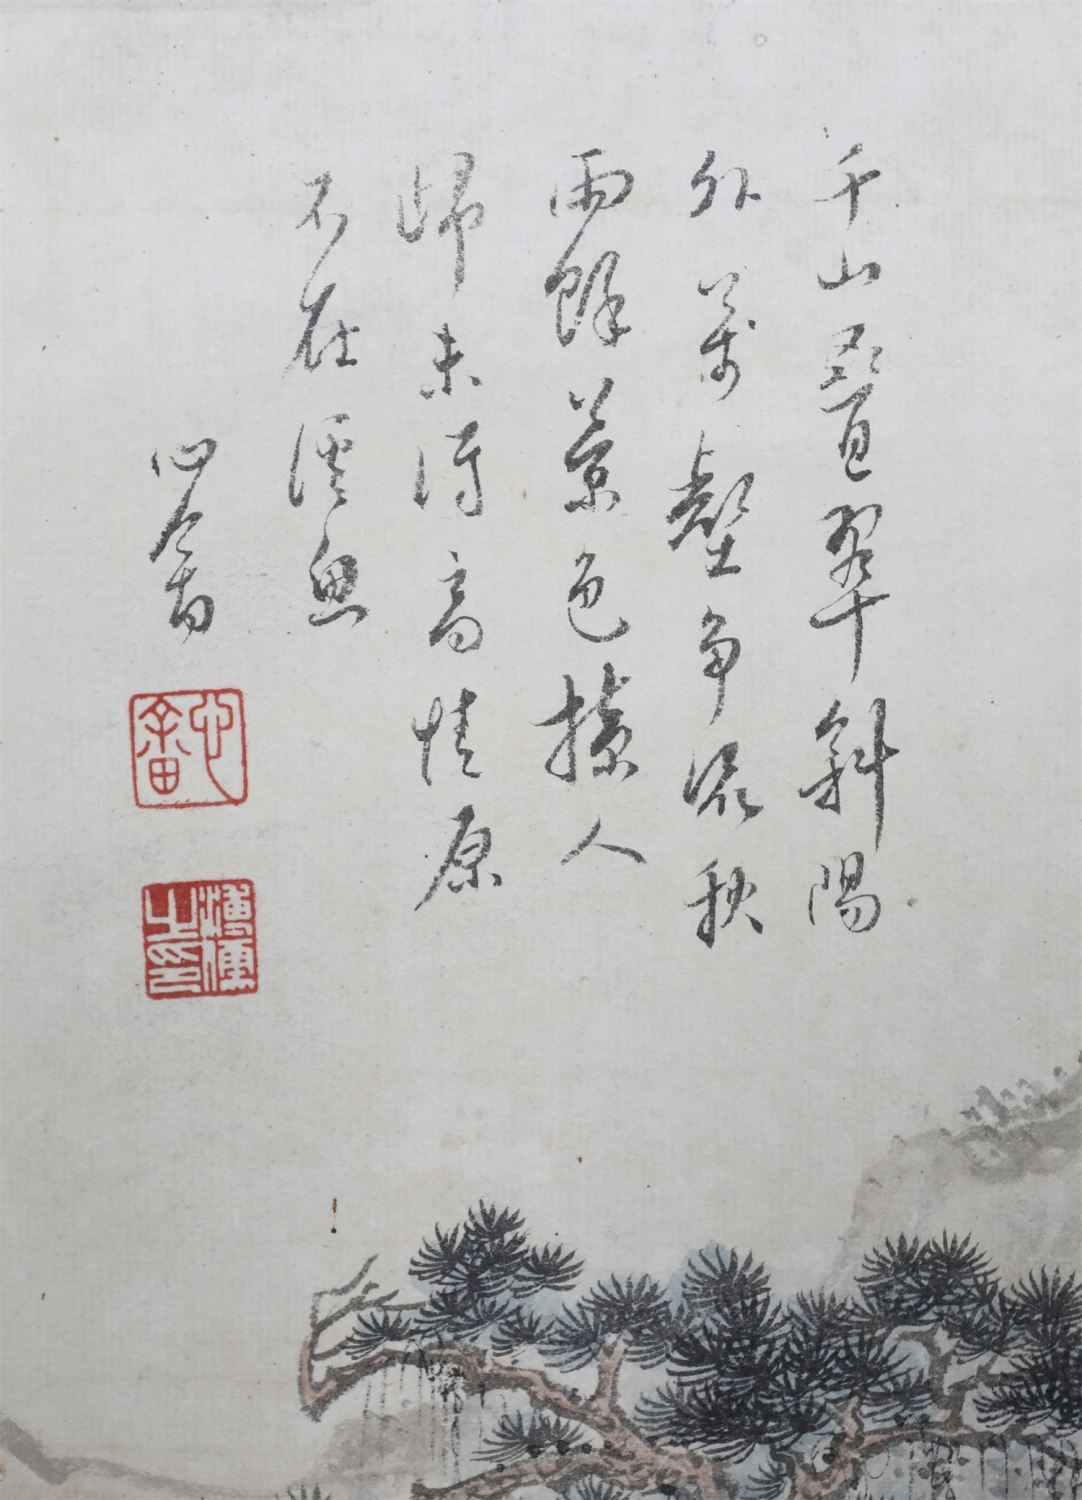 千山疊翠斜陽
外萬壑爭流秋
雨餘景色撩人
歸未得高情原
不在溪魚
心畬
心畬
溥儒之印